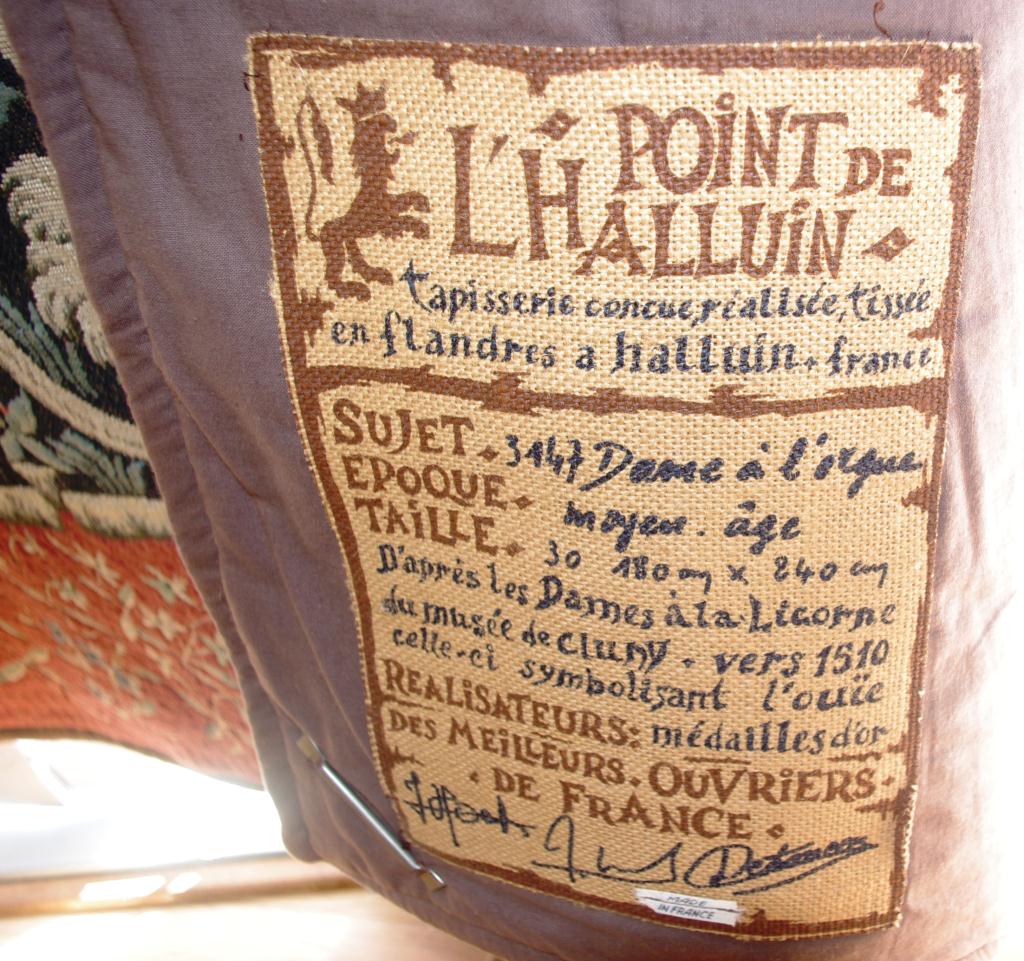 POINT DE
L'HALLUIN
tapisserie concue, réalisée, tissée
en flandres a halluin. france
SUJET. 3147 Dame à l'orgue
EPOQUE. moyen. âge
TAILLE. 30 180 cm x 240 cm
D'après les Dames à la Licorne
du musée de Cluny. vers 1510
celle-ci symbolisant l'ouïe
REALISATEURS: médailles d'or
DES MEILLEURS. OUVRIERS.
. DE FRANCE.
MADE
IN FRANCE